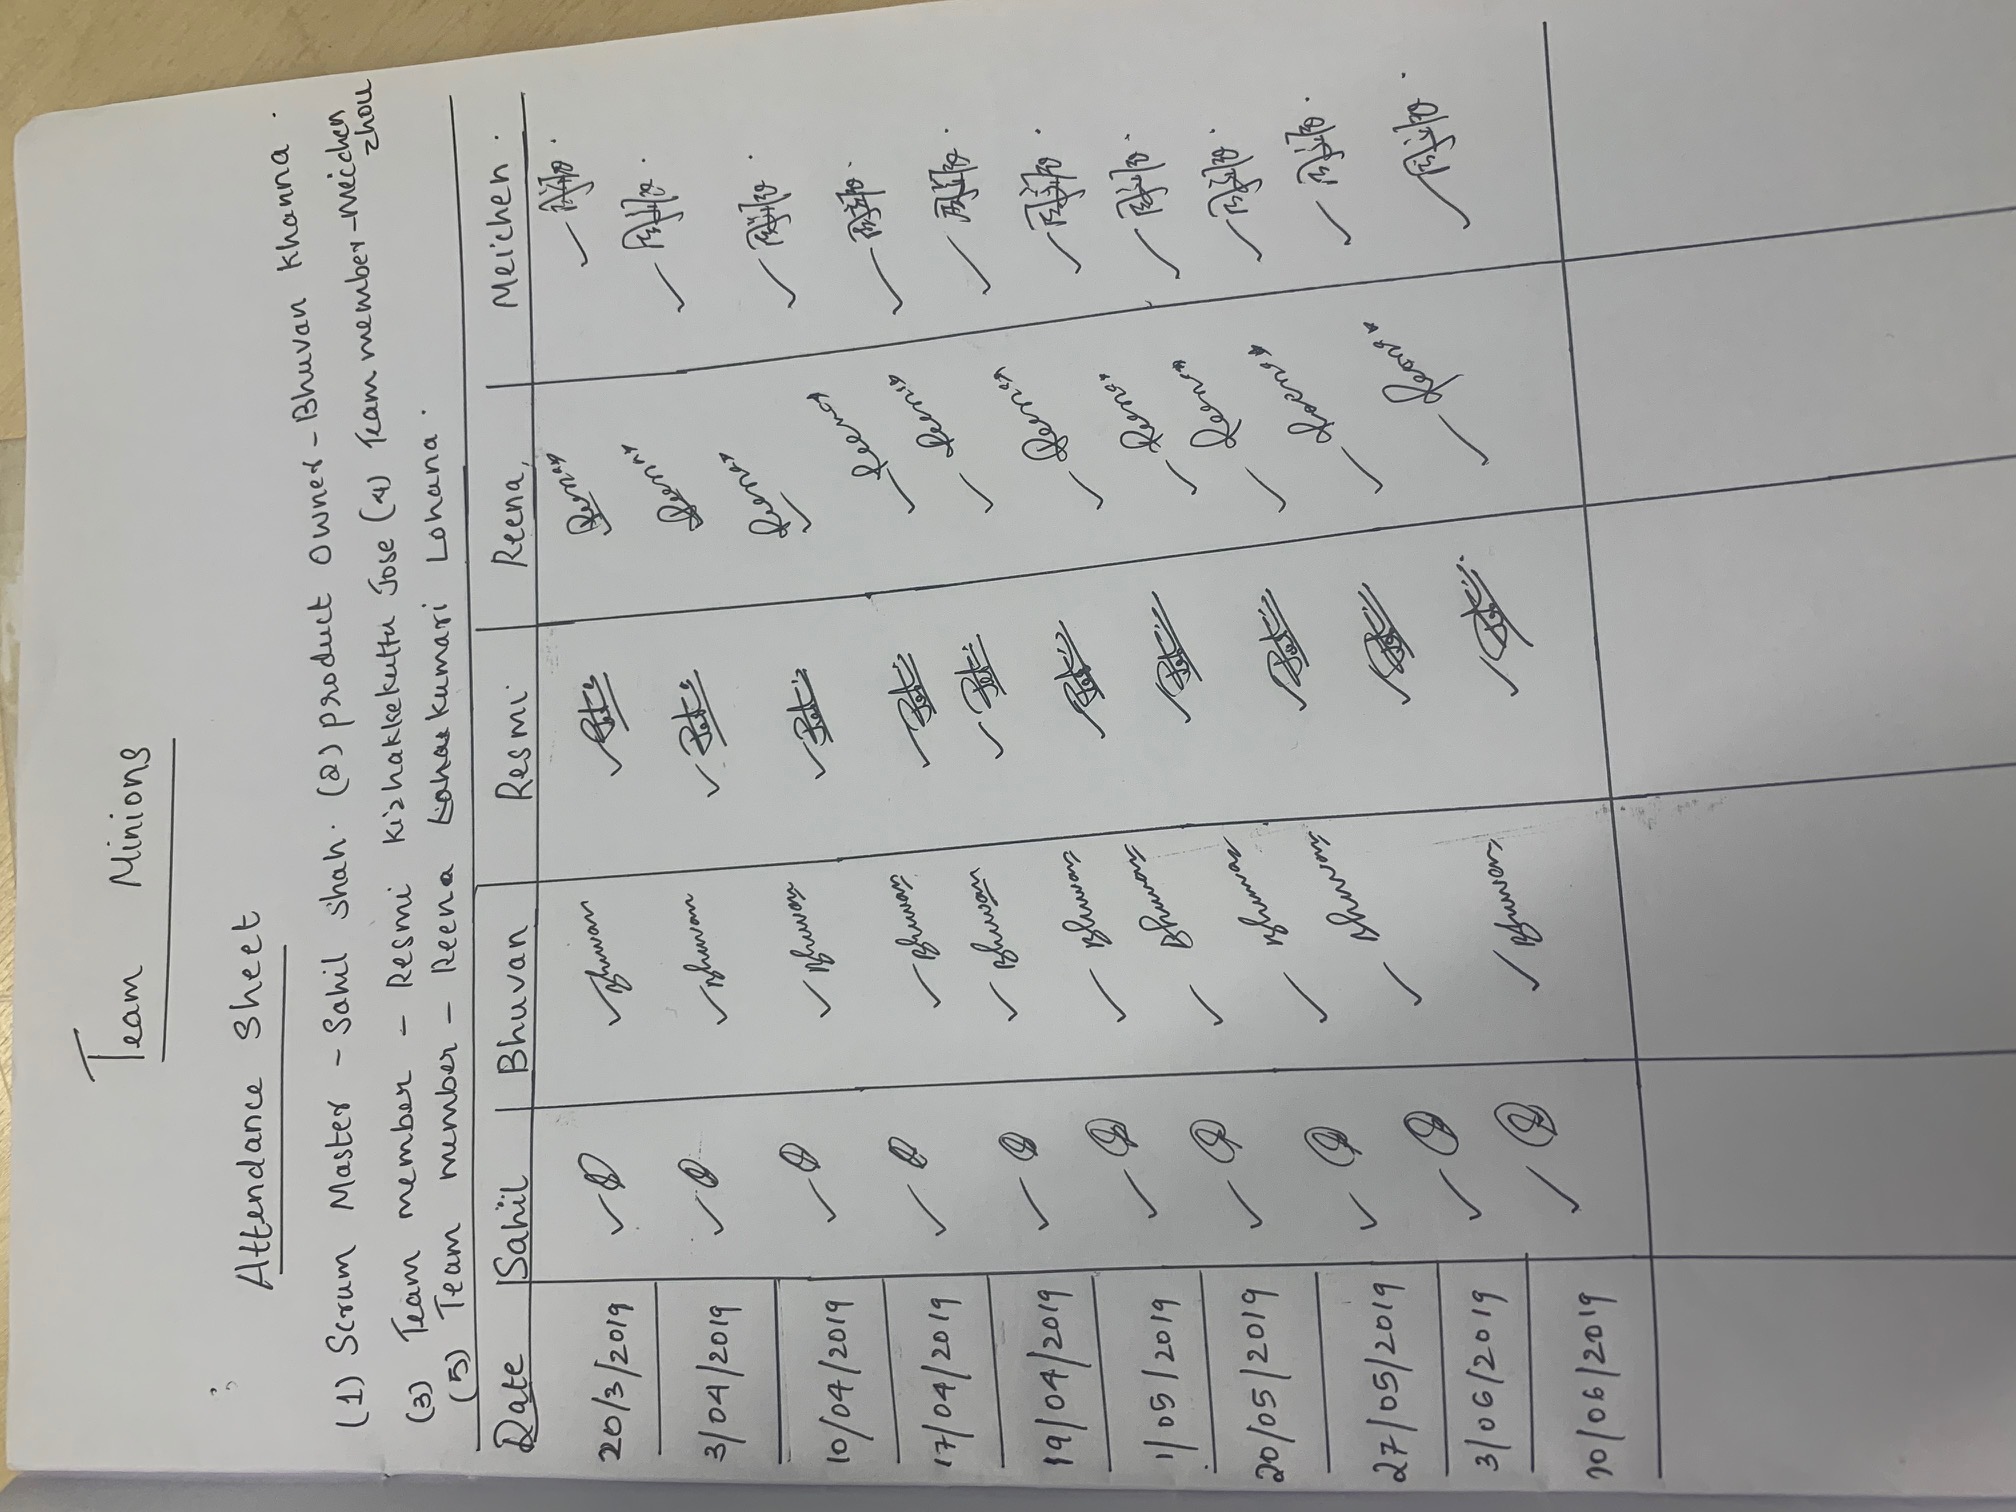 Team Minions
Attendance Sheet
(1) Scrum Master - Sahil Shah. (2) product Owner - Bhuvan Khanna.
(3) Team member - Resmi Kizhakkekuttu Jose (4) Team member - Meichen
Zhou
(5) Team member - Reena kumari Lohana.
Date Sahil Bhuvan Resmi Reena, Meichen.
20/3/2019 ✓ ✓ Bhuvan ✓ Reena ✓
3/04/2019 ✓ ✓ Bhuvan ✓ Reena ✓
10/04/2019 ✓ ✓ Bhuvan ✓ ✓ Reena ✓
17/04/2019 ✓ ✓ Bhuvan ✓ ✓ Reena ✓
19/04/2019 ✓ ✓ Bhuvan ✓ ✓ Reena ✓
1/05/2019 ✓ ✓ Bhuvan ✓ ✓ Reena ✓
20/05/2019 ✓ ✓ Bhuvan ✓ ✓ Reena ✓
27/05/2019 ✓ ✓ Bhuvan ✓ ✓ Reena ✓
3/06/2019 ✓ ✓ Bhuvan ✓ ✓ Reena ✓
10/06/2019 ✓ ✓ Bhuvan ✓ ✓ Reena ✓